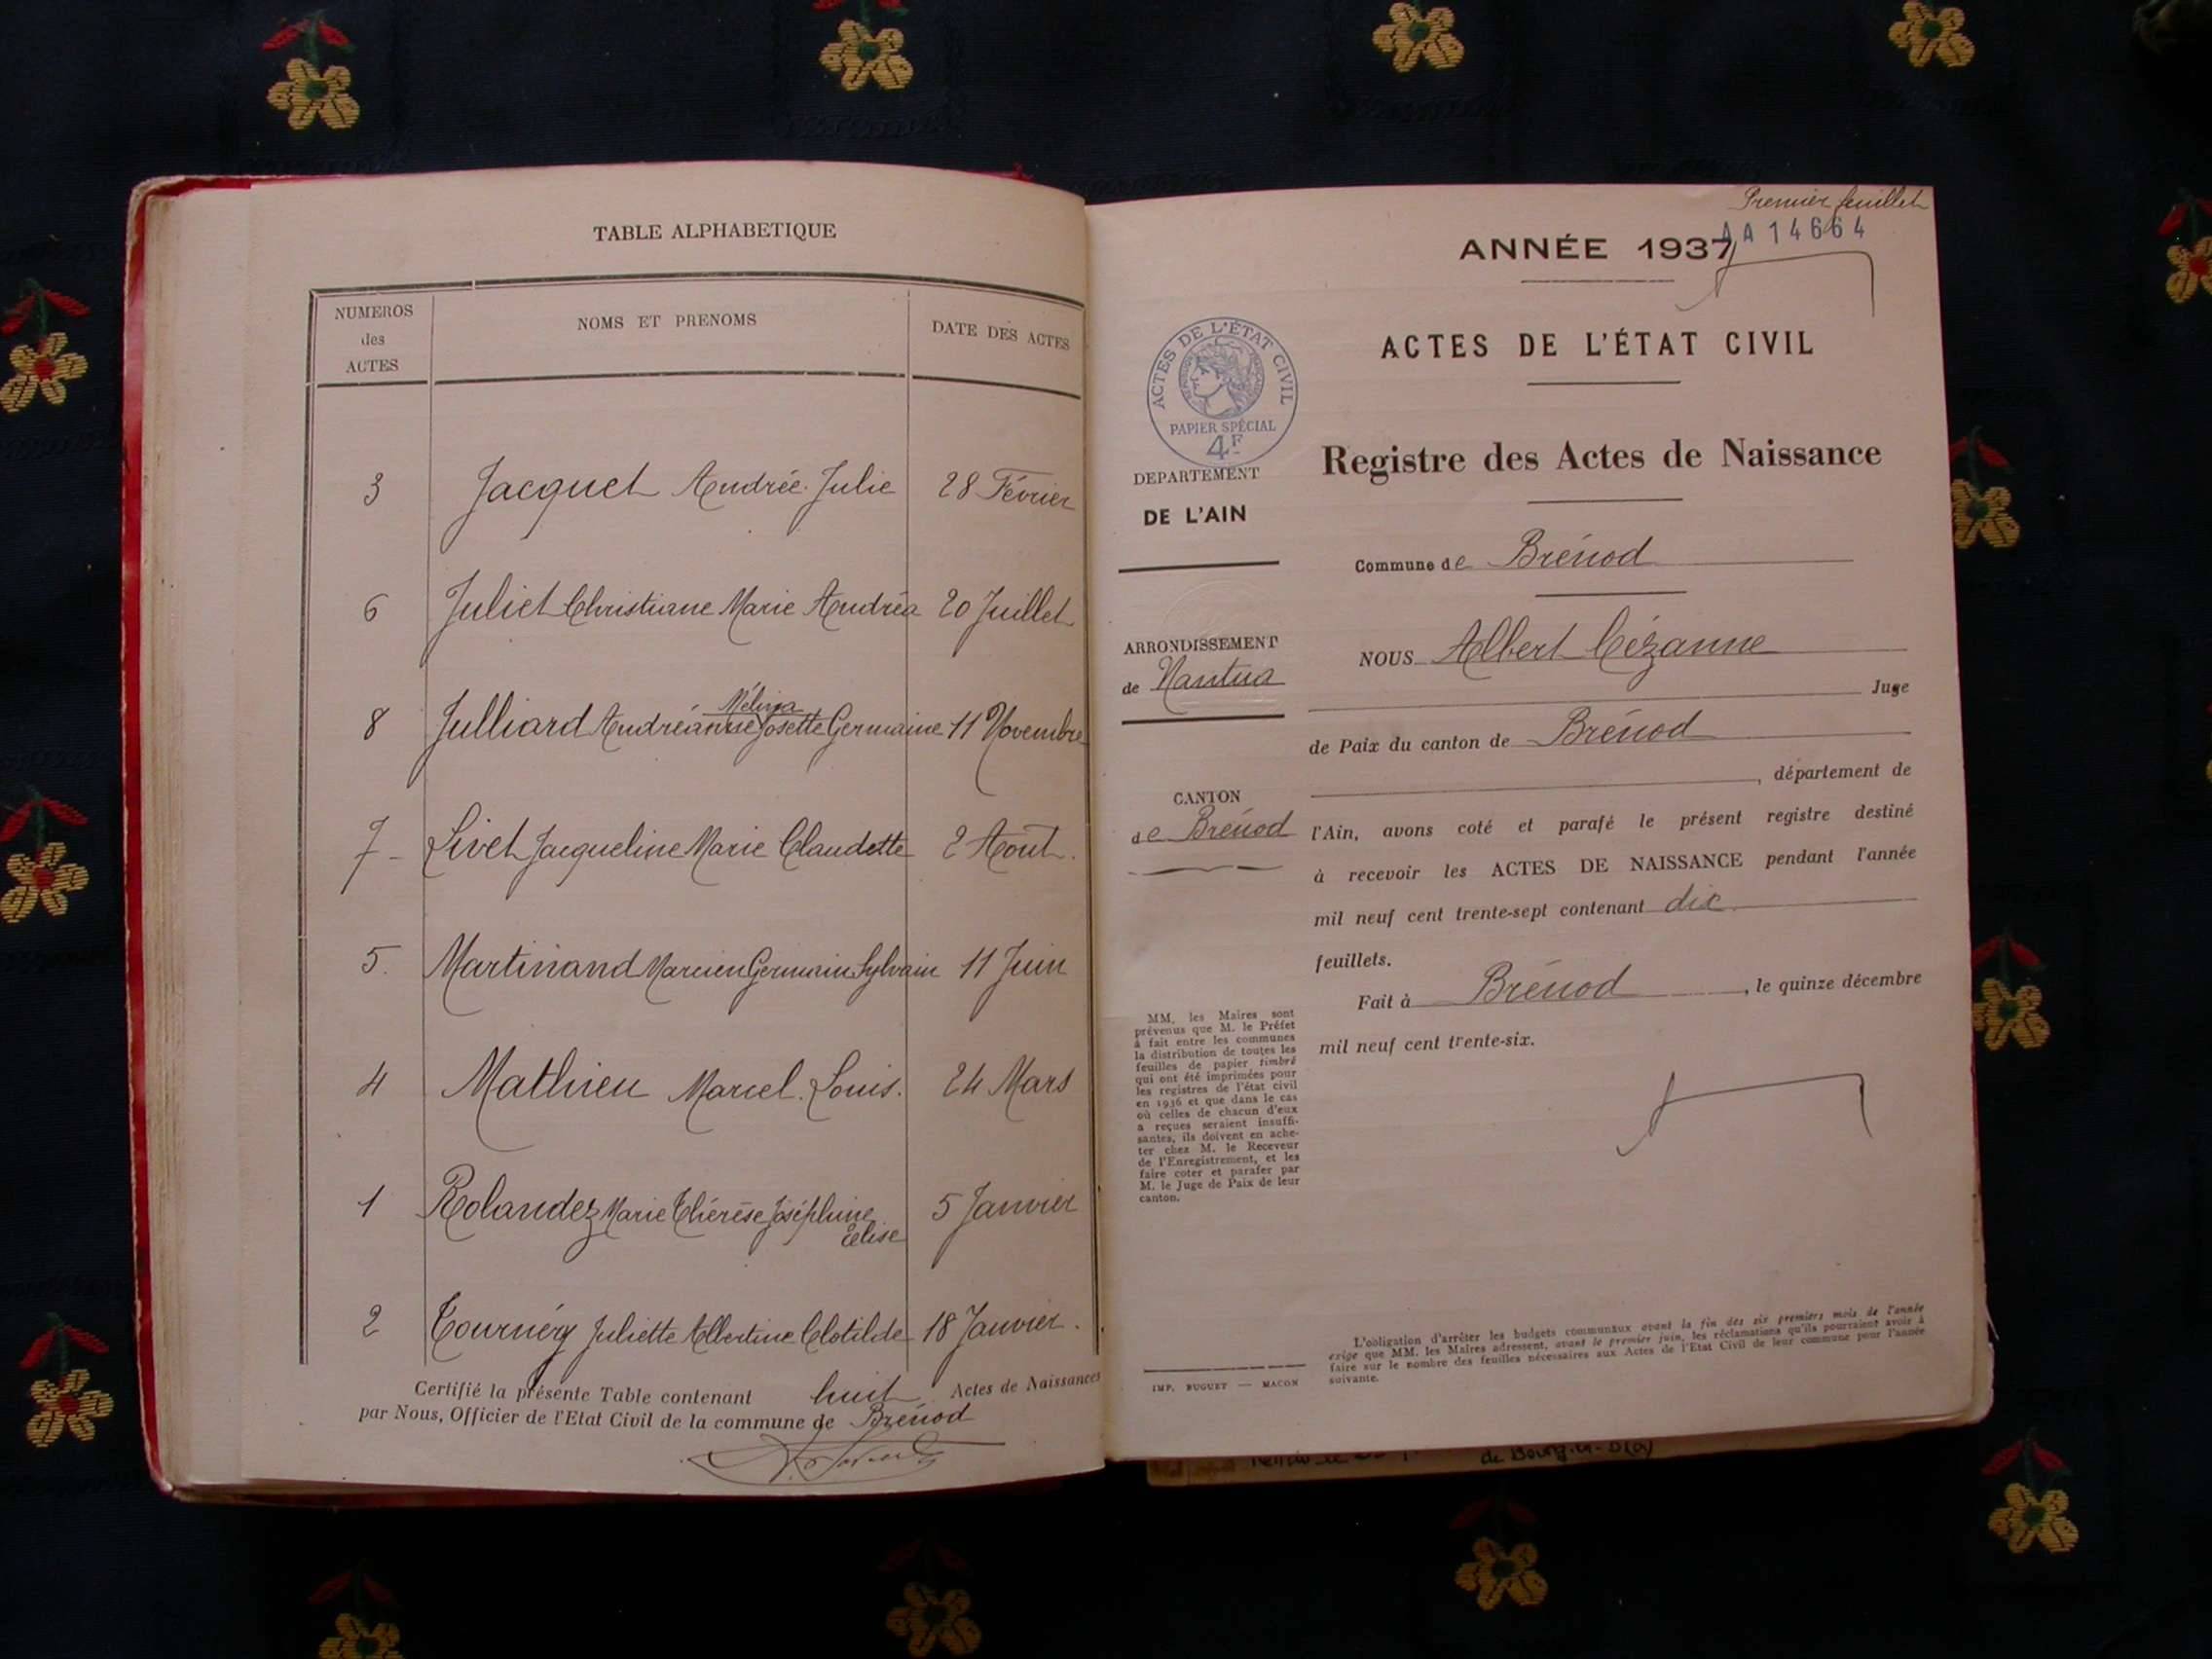 TABLE ALPHABETIQUE
NUMEROS
des
ACTES
NOMS ET PRENOMS
DATE DES ACTES
3 Jacquet Andrée Julie 28 Février
6 Juliet Christiane Marie Andréa 20 Juillet
Mélina
8 Julliard Andréanne Josette Germaine 11 Novembre
7 - Livet Jacqueline Marie Claudette 2 Août.
5. Martinand Marcien Germain Sylvain 11 Juin
4 Mathieu Marcel Louis. 24 Mars
1 Rolandez Marie Thérèse Joséphine 5 Janvier
Elise
2 Tournéry Juliette Albertine Clotilde 18 Janvier.
Certifié la présente Table contenant huit Actes de Naissances
par Nous, Officier de l'Etat Civil de la commune de Brénod
Premier feuillet
AA 14664
ANNÉE 1937
ACTES DE L'ÉTAT CIVIL
ACTES DE L'ÉTAT CIVIL
PAPIER SPÉCIAL
4F
Registre des Actes de Naissance
DEPARTEMENT
DE L'AIN
Commune de Brénod
ARRONDISSEMENT
de Nantua
NOUS Albert Cézanne
Juge
de Paix du canton de Brénod
, département de
CANTON
de Brénod
l'Ain, avons coté et parafé le présent registre destiné
à recevoir les ACTES DE NAISSANCE pendant l'année
mil neuf cent trente-sept contenant dix
feuillets.
Fait à Brénod, le quinze décembre
mil neuf cent trente-six.
MM, les Maires sont
prévenus que M. le Préfet
à fait entre les communes
la distribution de toutes les
feuilles de papier timbré
qui ont été imprimées pour
les registres de l'état civil
en 1936 et que dans le cas
où celles de chacun d'eux
a reçues seraient insuffi-
santes, ils doivent en ache-
ter chez M. le Receveur
de l'Enregistrement, et les
faire coter et parafer par
M. le Juge de Paix de leur
canton.
L'obligation d'arrêter les budgets communaux avant la fin des six premiers mois de l'année
exige que MM. les Maires adressent, avant le premier juin, les réclamations qu'ils pourraient avoir à
faire sur le nombre des feuilles nécessaires aux Actes de l'Etat Civil de leur commune pour l'année
suivante.
IMP. BUGUET — MACON
de Bourg-en-B(a)